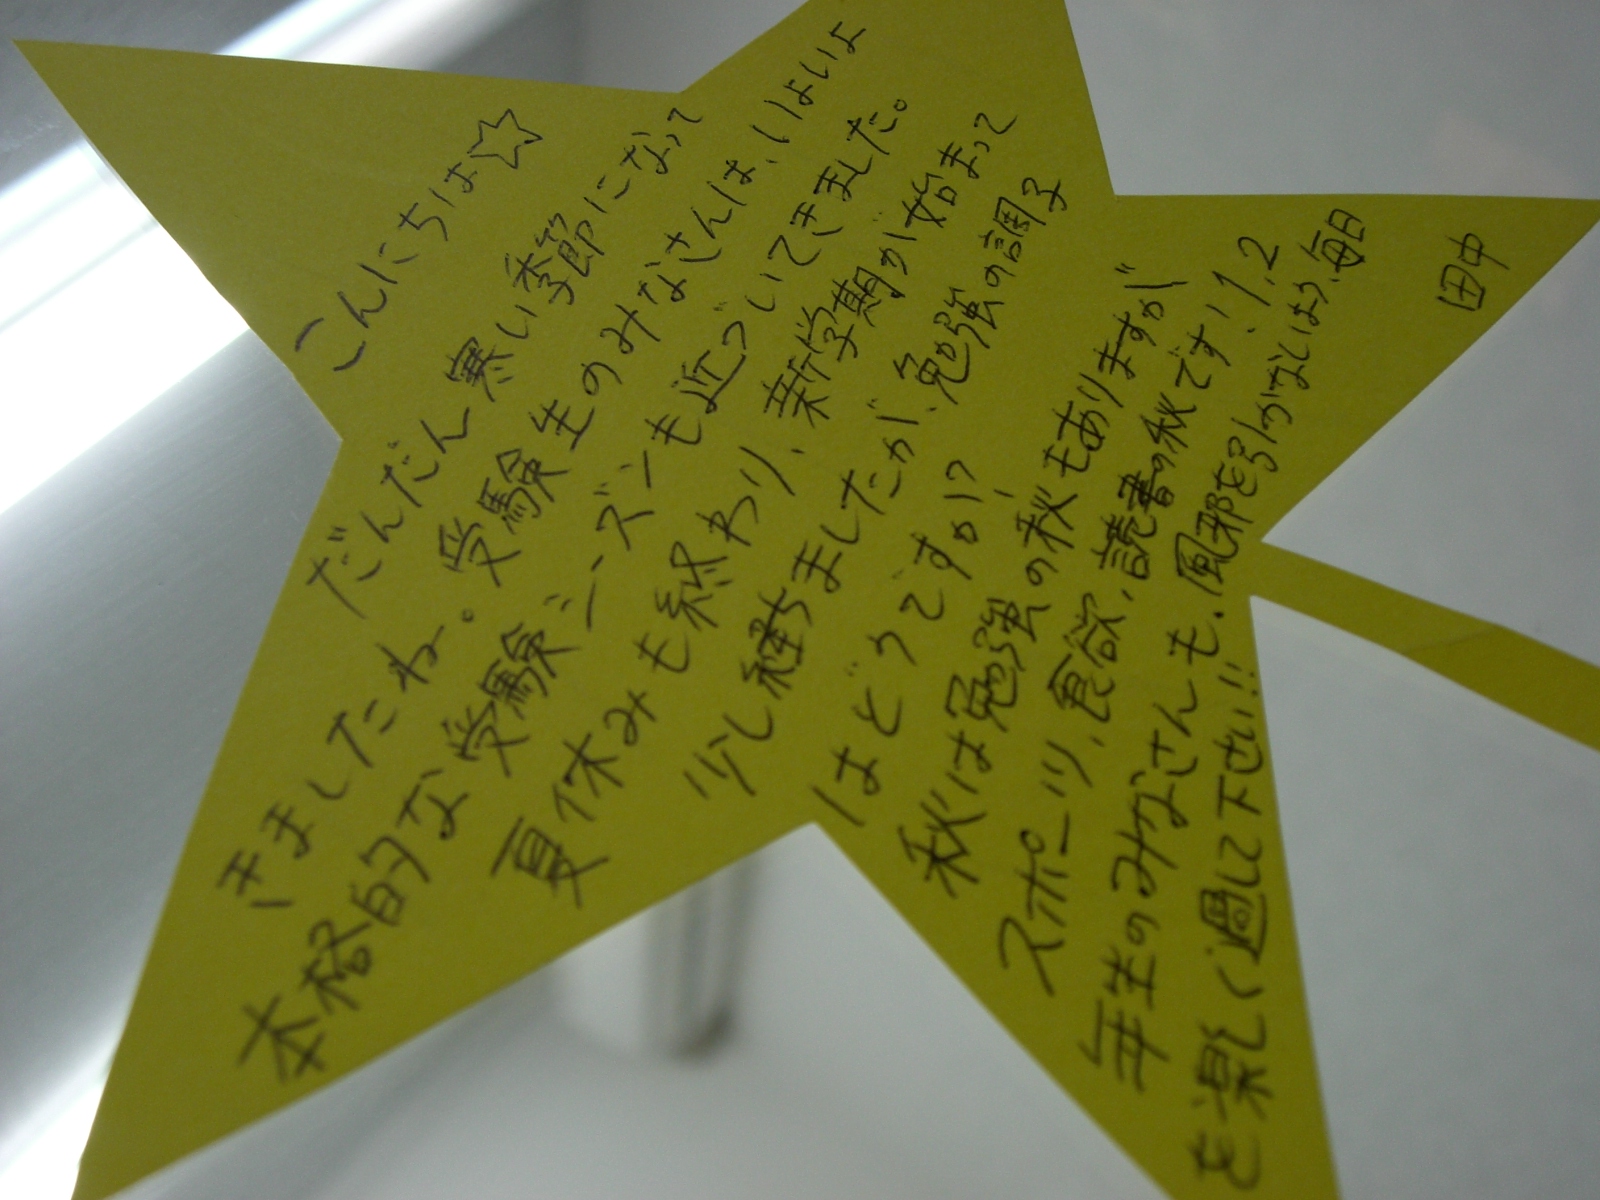 こんにちは☆
だんだん寒い季節になって
きましたね。受験生のみなさんは、いよいよ
本格的な受験シーズンも近づいてきました。
夏休みも終わり、新学期が始まって
少し経ちましたが、勉強の調子
はどうですか!?
秋は勉強の秋もありますが
スポーツ、食欲、読書の秋です！1、2
年生のみなさんも、風邪を引かないよう、毎日
を楽しく過して下さい!!
田中